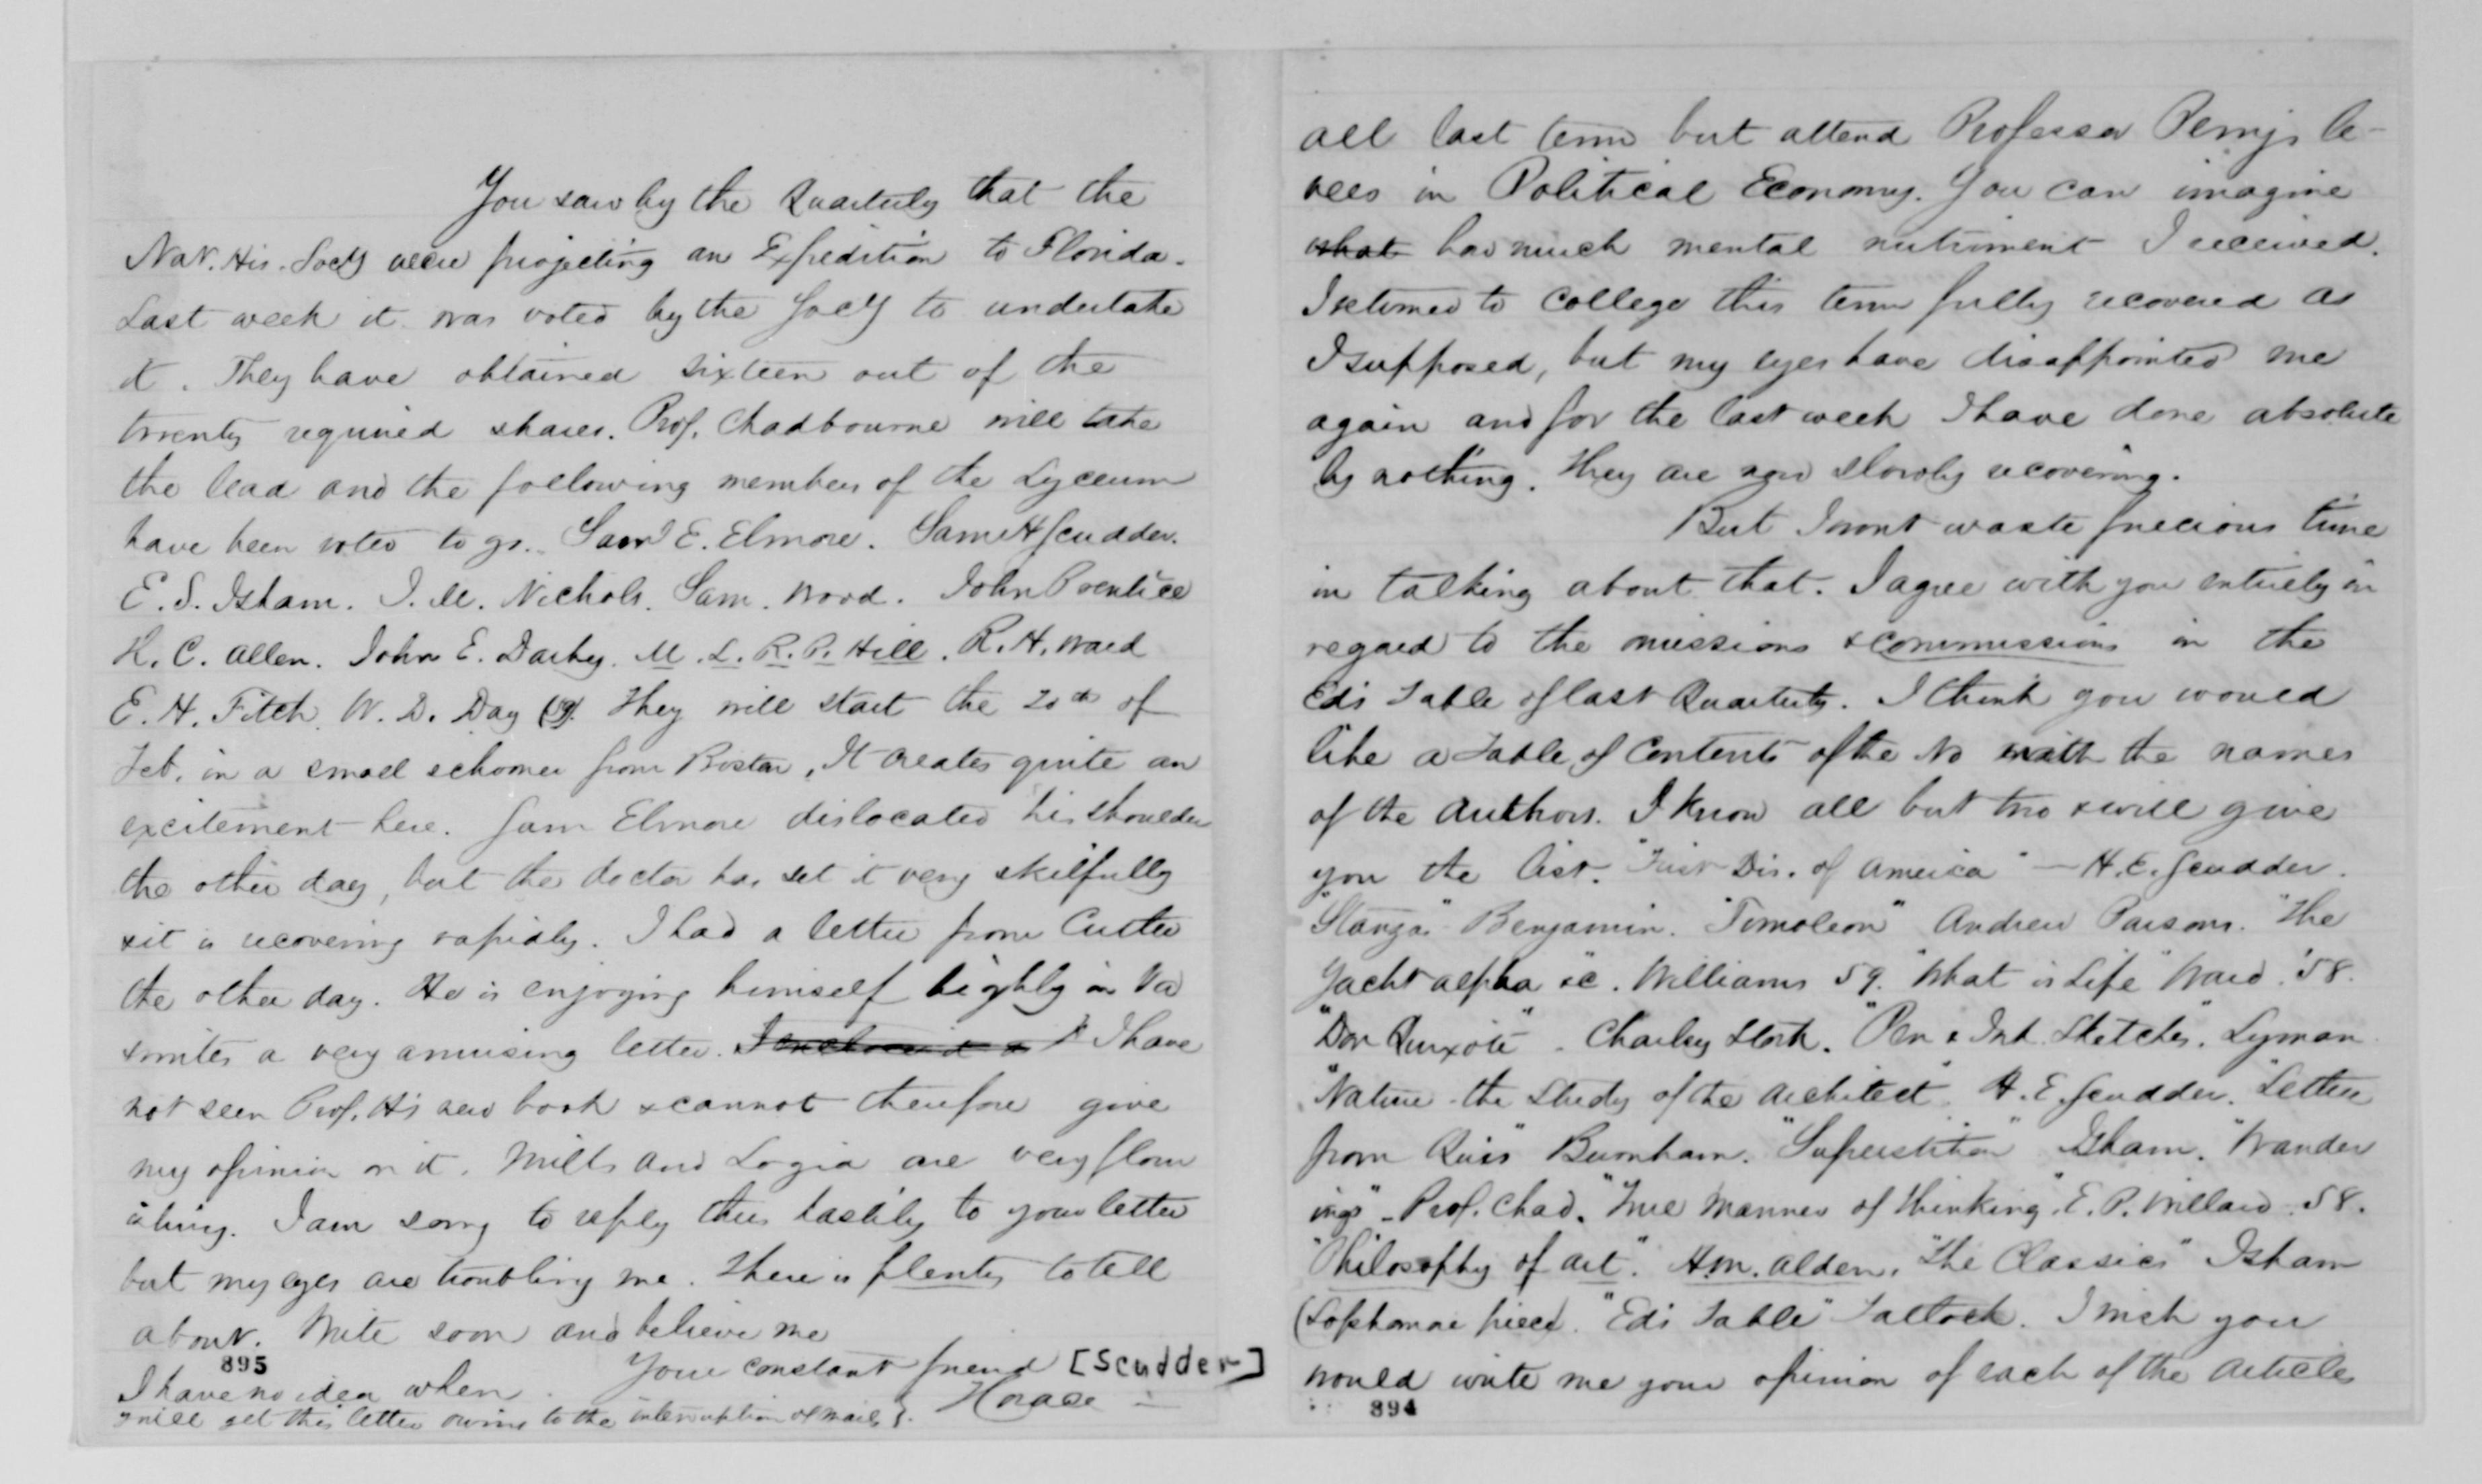 You saw by the Quarterly that the
Nat. His. Socy were projecting an Expedition to Florida.
Last week it was voted by the Socy to undertake
it. They have obtained sixteen out of the
twenty required shares. Prof. Chadbourne will take
the lead and the following members of the Lyceum
have been voted to go. Sam E. Elmore. Sam H Scudder.
E. S. Isham. I. M. Nichols. Sam. Wood. John Prentice
H. C. Allen. John E. Darby. M. L. R. P. Hill. R. H. Ward
E. H. Fitch. W. D. Day (59). They will start the 20th of
Feb. in a small schooner from Boston. It creates quite an
excitement here. Sam Elmore dislocated his shoulder
the other day, but the doctor has set it very skilfully
& it is recovering rapidly. I had a letter from Cutter
the other day. He is enjoying himself highly in Va
& writes a very amusing letter. I have
not seen Prof. H's new book & cannot therefore give
my opinion on it. Mills and Logia are very flour
ishing. I am sorry to reply thus hastily to your letter
but my eyes are troubling me. There is plenty to tell
about. Write soon and believe me
Your constant friend [Scudder]
Horace
895
I have no idea when
will get this letter owing to the interruption of mails.
all last term but attend Professor Perry's le-
vees in Political Economy. You can imagine
what how much mental nutriment I received.
I returned to College this term fully recovered as
I supposed, but my eyes have disappointed me
again and for the last week I have done absolute
ly nothing. They are now slowly recovering.
But I wont waste precious time
in talking about that. I agree with you entirely in
regard to the missions & commissions in the
Eds Table of last Quarterly. I think you would
like a Table of Contents of the No with the names
of the authors. I know all but two & will give
you the list. "First Dis. of America" — H. E. Scudder.
"Stanzas" Benjamin. "Timoleon" Andrew Parsons. "The
Yacht alpha &c. Williams 59. "What is Life" Ward. '58.
"Don Quixote". Charley Stork. "Pen & Ink Sketches". Lyman
"Nature the Study of the Architect". H. E. Scudder. "Letter
from " Burnham. "Superstition" Isham. "Wander
ings" - Prof. Chad. "True Manner of thinking". E. P. Willard. 58.
"Philosophy of art". H. M. Alden. "The Classics" Isham
(Sophomore piece). "Eds Table" Tatlock. I wish you
would write me your opinion of each of the articles
894